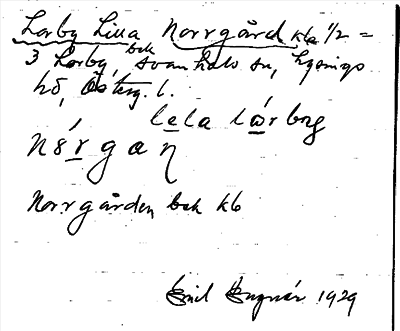 Lorby Lilla Norrgård kla 1/2 =
3 Lorby, bek Svanhals sn, Lysings
hd, Österg. l.
lela lȧrbyg
nórgaŋ
Norrgården bek kb
Emil 1929